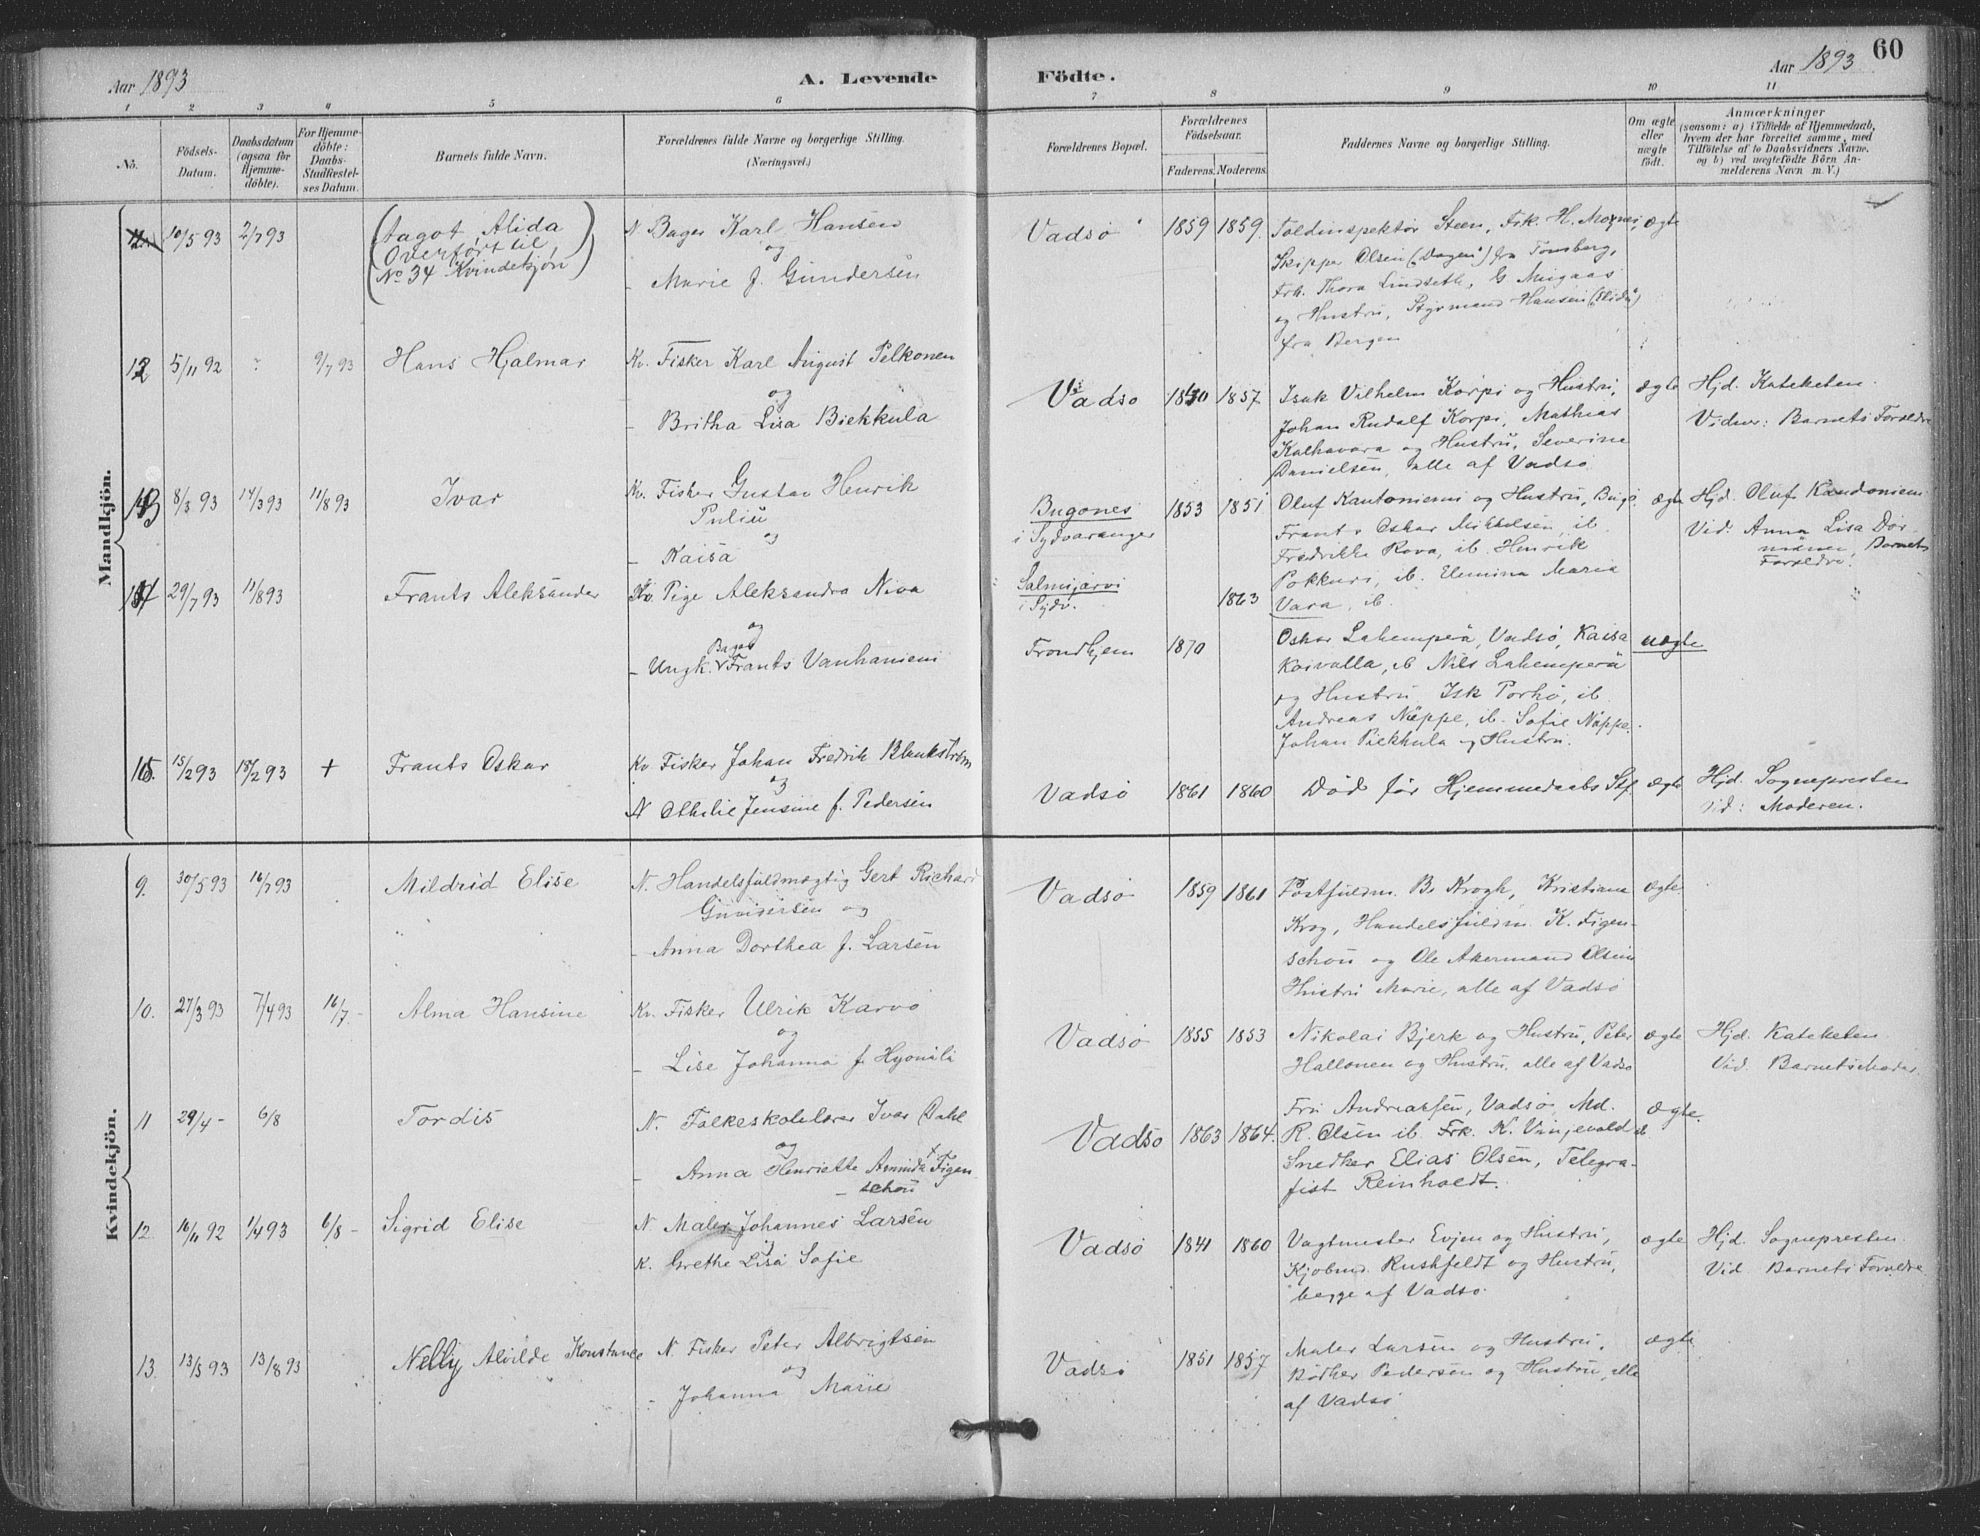 Aar 1893
A. Levende
Födte.
Aar 1893
60
1 2 3 4 5 6 7 8 9 10 11
No.
Födsels-
Datum.
Daabsdatum
(ogsaa for
Hjemme-
döbte).
For Hjemme-
döbte:
Daabs-
Stadfæstel-
ses Datum.
Barnets fulde Navn.
Forældrenes fulde Navne og borgerlige Stilling.
(Næringsvei.)
Forældrenes Bopæl.
Forældrenes
Födselsaar.
Faderens. Moderens.
Faddernes Navne og borgerlige Stilling.
Om ægte
eller
uægte
födt.
Anmærkninger
(saasom: a) i Tilfælde af Hjemmedaab,
hvem der har forrettet samme, med
Tilföielse af to Daabsvidners Navne,
og b) ved uægtefödte Börn An-
melderens Navn m. V.)
Mandkjön.
10/5 93 2/7 93
(Aagot Alida
Overført til
No 34 Kvindekjøn)
N Bager Karl Hansen
og
- Marie f. Gundersen
Vadsø
1859 1859.
Toldinspektør Steen, Frk. H.
Skipper Olsen ("Dagny") fra Tønsberg,
Frk. Thora Lindseth, G. Migaas
og Hustru, Sigmund Hansen
fra Bergen
ægte
12 5/11 92 ? 9/7 93
Hans Hjalmar
Kv. Fisker Karl August Pelkonen
og
- Britha Lisa Biekkula
Vadsø
1857
Isak Vilhelm Korpi og Hustru,
Johan Rudolf Korpi, Mathias
Kalhavara og Hustru, Severine
Danielsen, alle af Vadsø
ægte
Hjd. Kateketen.
Vidner: Barnets Forældre
13 8/3 93 14/3 93 11/8 93
Ivar
Kv. Fisker Gustav Henrik
Puliu
og
- Kaisa
Bugønes
i Sydvaranger
1853 1851
Oluf Kantoniemi og Hustru, Bugø.
Frants Oskar Mikkelsen, ib.
Fredrikke Rova, ib. Henrik
Pokkuri, ib. Elemina Maria
Vara, ib.
ægte
Hjd. Oluf Kandoniem
Vid. Anna Lisa Dor-
Barnets
Forældre.
14 29/7 93 11/8 93
Frants Aleksander
Kv. Pige Aleksandra Niva
og
- Ungk. Bager Frants Vanhaniemi
Salmijärvi
i Sydv.
1863
Trondhjem
1870
Oskar Lahempera, Vadsø, Kaisa
Koivalla, ib Nils Lahemperä
og Hustru Isk Porho, ib
Andreas Näppe, ib. Sofie Näppe.
Johan Piekkula og Hustru.
uægte
15. 15/2 93 18/2 93 +
Frants Oskar
Kv Fisker Johan Fredrik Blankstrøm
og
N Othilie Jensine f. Pedersen
Vadsø
1861 1860
Død før Hjemmedaabs Stf
ægte
Hjd. Sognepresten
Vid: Moderen.
Kvindekjön.
9. 30/5 93 16/7 93
Mildrid Elise
N. Handelsfuldmægtig Gert Richard
Gundersen og
- Anna Dorthea f. Larsen
Vadsø
1859 1861
Postfuldm. B. Krogh, Kristiana
Krog, Handelsfuldm. K. Figen-
schou og Ole Akermand Olsens
Hustru Marie, alle af Vadsø
ægte
10. 27/3 93 7/4 93 16/7 -
Alma Hansine
Kv. Fisker Ulrik Karvo
og
- Lise Johanna f. Hyonälä
Vadsø
1855 1853
Nikolai Bjerk og Hustru, Peter
Hallonen og Hustru, alle af Vadsø
ægte
Hjd. Kateketen
Vid. Barnets Moder.
11 29/4 - 6/8
Tordis
N. Folkeskolelærer Ivar Dahl
og
- Anna Henriette Aminda f. Figen
- schou
Vadsø
1863 1864.
Fru Andreassen, Vadsø, Md.
R. Olsen ib Frk. K. Vinjevold ib.
Snedker Elias Olsen, Telegra-
fist Reinholdt.
ægte.
12. 16/11 92 1/4 93 6/8 -
Sigrid Elise
N. Maler Johannes Larsen
K. Grethe Lisa Sofie
Vadsø
1841 1860
Vagtmester Evjen og Hustru,
Kjøbmd. Rushfeldt og Hustru,
begge af Vadsø.
ægte
Hjd. Sognepresten.
Vid. Barnets Forældre
13. 13/5 93 13/8 93
Nelly Alvilde Konstance
N. Fisker Peter Albrigtsen
og
- Johanna Marie
Vadsø
1851 1857
Maler Larsen og Hustru,
Bødker Pedersen og Hustru, alle
af Vadsø
ægte